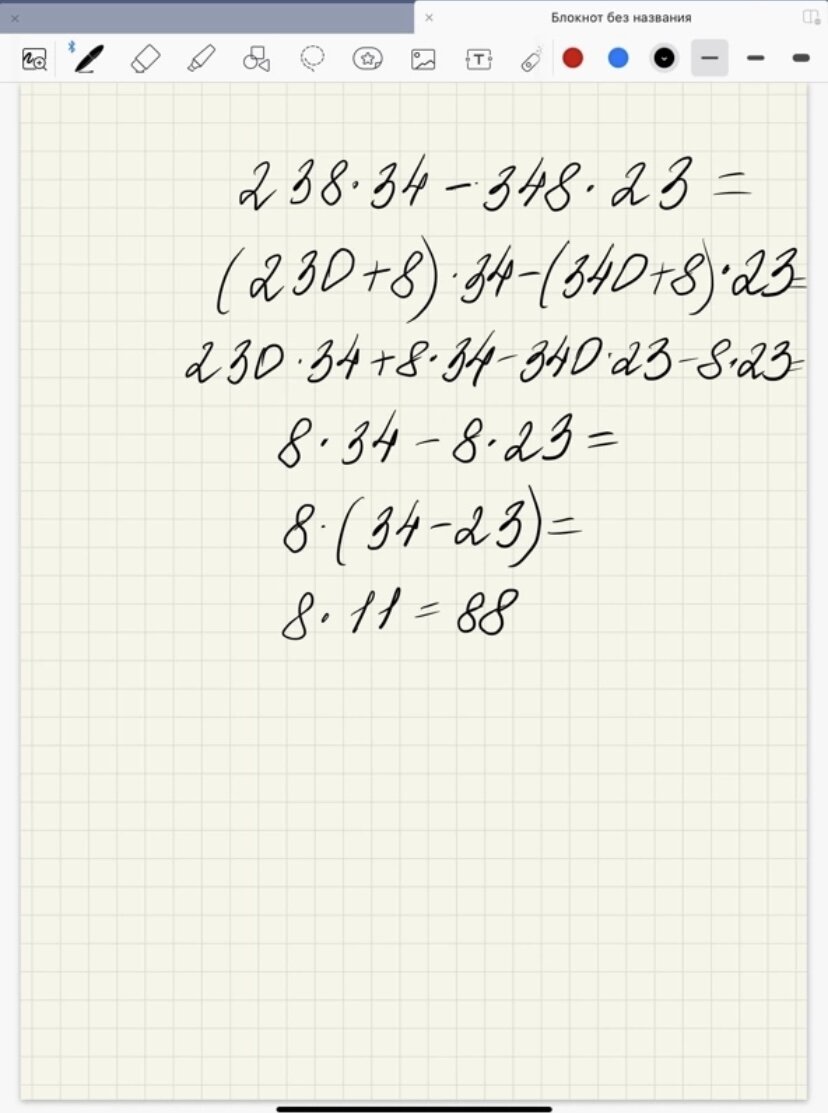 Блокнот без названия
238·34-348·23=
(230+8)·34-(340+8)·23=
230·34+8·34-340·23-8·23=
8·34-8·23=
8·(34-23)=
8·11=88